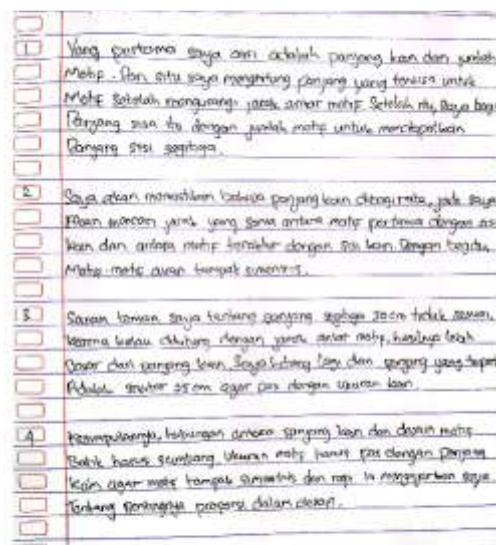 1 Yang pertama saya cari adalah panjang kain dan jumlah
Motif. Dari situ saya menghitung panjang yang tersisa untuk
Motif setelah mengurangi jarak antar motif. Setelah itu, saya bagi
Panjang sisa itu dengan jumlah motif untuk mendapatkan
Panjang sisi segitiga.
2 Saya akan memastikan bahwa panjang kain dibagi rata, jadi saya
Akan mencari jarak yang sama antara motif pertama dengan sisi
kain dan antara motif terakhir dengan sisi kain. Dengan begitu,
Motif-motif akan tampak simetris.
3 Saran teman saya tentang panjang segitiga 30cm tidak sesuai,
karena kalau dihitung dengan jarak antar motif, hasilnya lebih
besar dari panjang kain. Saya hitung lagi dan panjang yang tepat
Adalah sekitar 25 cm agar pas dengan ukuran kain.
4 Kesimpulannya, hubungan antara panjang kain dan desain motif
Batik harus seimbang. Ukuran motif harus pas dengan panjang
Kain agar motif tampak simetris dan rapi. Ini mengajarkan saya
Tentang pentingnya proporsi dalam desain.